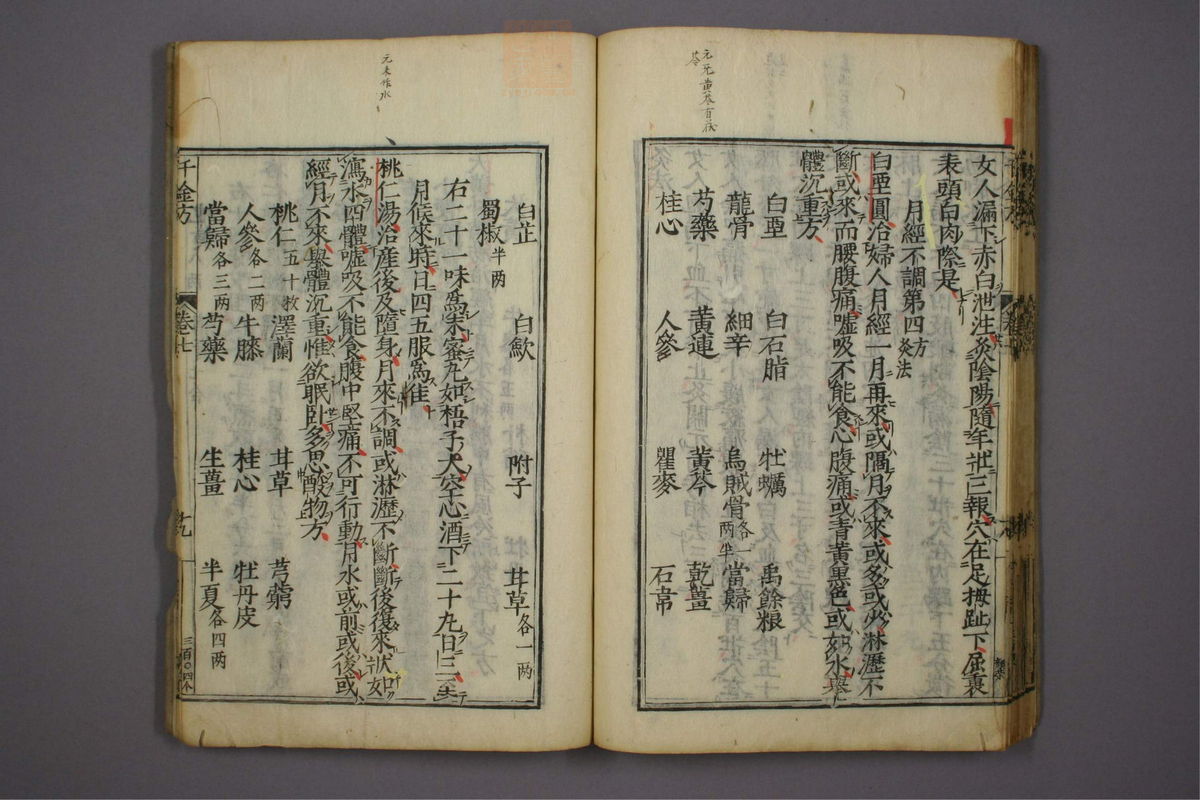 元无黄芩有茯
苓
女人漏下赤白泄注灸陰陽隨年壯三報穴在足拇趾下屈裏
表頭白肉際是
月經不調第四方灸法
白堊圓治婦人月經一月再來或隔月不來或多或少淋瀝不
斷或來而腰腹痛噓吸不能食心腹痛或青黃黑色或如水舉
體沉重方
白堊 白石脂 牡蠣 禹餘粮
龍骨 細辛 烏賊骨各一两半 當歸
芍藥 黃連 黃芩 乾薑
桂心 人參 瞿麥 石韋
元末作水
白芷 白歛 附子 甘草各一两
蜀椒半两
右二十一味爲末蜜丸如梧子大空心酒下二十九日三
月候來時日四五服爲佳
桃仁湯治産後及墮身月來不調或淋瀝不斷斷後復來狀如
瀉水四體噓吸不能食腹中堅痛不可行動月水或前或後或
經月不來舉體沉重惟欲眠卧多思酸物方
桃仁五十枚 澤蘭 甘草 芎藭
人參各二两 牛膝 桂心 牡丹皮
當歸各三两 芍藥 生薑 半夏各四两
千金方 卷七 十九
三百〇四个